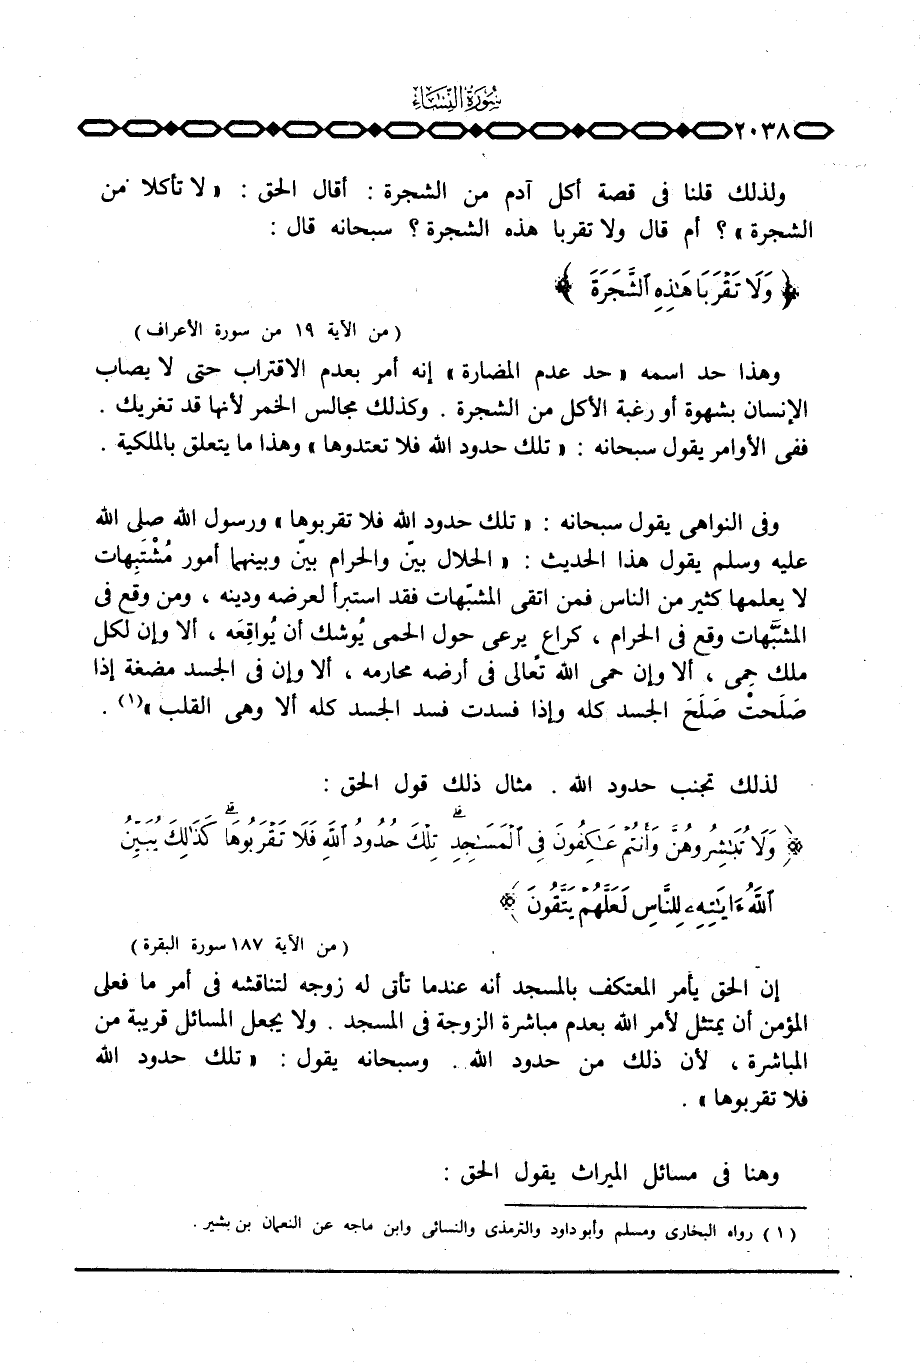 سُورَةُ النِّسَاءِ
٢٠٣٨
ولذلك قلنا فى قصة أكل آدم من الشجرة : أقال الحق : « لا تأكلا من
الشجرة » ؟ أم قال ولا تقربا هذه الشجرة ؟ سبحانه قال :
﴿ وَلَا تَقْرَبَا هَـٰذِهِ ٱلشَّجَرَةَ ﴾
( من الآية ١٩ من سورة الأعراف )
وهذا حد اسمه « حد عدم المضارة » إنه أمر بعدم الاقتراب حتى لا يصاب
الإنسان بشهوة أو رغبة الأكل من الشجرة . وكذلك مجالس الخمر لأنها قد تغريك .
ففى الأوامر يقول سبحانه : « تلك حدود الله فلا تعتدوها » وهذا ما يتعلق بالملكية .
وفى النواهى يقول سبحانه : « تلك حدود الله فلا تقربوها » ورسول الله صلى الله
عليه وسلم يقول هذا الحديث : « الحلال بينّ والحرام بينّ وبينهما أمور مُشْتَبِهات
لا يعلمها كثير من الناس فمن اتقى المشبّهات فقد استبرأ لعرضه ودينه ، ومن وقع فى
المشبَّهات وقع فى الحرام ، كراعٍ يرعى حول الحمى يُوشك أن يُواقِعَه ، ألا وإن لكل
ملك حِمى ، ألا وإن حمى الله تعالى فى أرضه محارمه ، ألا وإن فى الجسد مضغة إذا
صَلَحتْ صَلَحَ الجسد كله وإذا فسدت فسد الجسد كله ألا وهى القلب »(١) .
لذلك تجنب حدود الله . مثال ذلك قول الحق :
﴿ وَلَا تُبَـٰشِرُوهُنَّ وَأَنتُمْ عَـٰكِفُونَ فِى ٱلْمَسَـٰجِدِ ۗ تِلْكَ حُدُودُ ٱللَّهِ فَلَا تَقْرَبُوهَا ۗ كَذَٰلِكَ يُبَيِّنُ
ٱللَّهُ ءَايَـٰتِهِۦ لِلنَّاسِ لَعَلَّهُمْ يَتَّقُونَ ﴾
( من الآية ١٨٧ سورة البقرة )
إن الحق يأمر المعتكف بالمسجد أنه عندما تأتى له زوجه لتناقشه فى أمر ما فعلى
المؤمن أن يمتثل لأمر الله بعدم مباشرة الزوجة فى المسجد . ولا يجعل المسائل قريبة من
المباشرة ، لأن ذلك من حدود الله . وسبحانه يقول : « تلك حدود الله
فلا تقربوها » .
وهنا فى مسائل الميراث يقول الحق :
( ١ ) رواه البخارى ومسلم وأبو داود والترمذى والنسائى وابن ماجه عن النعمان بن بشير .